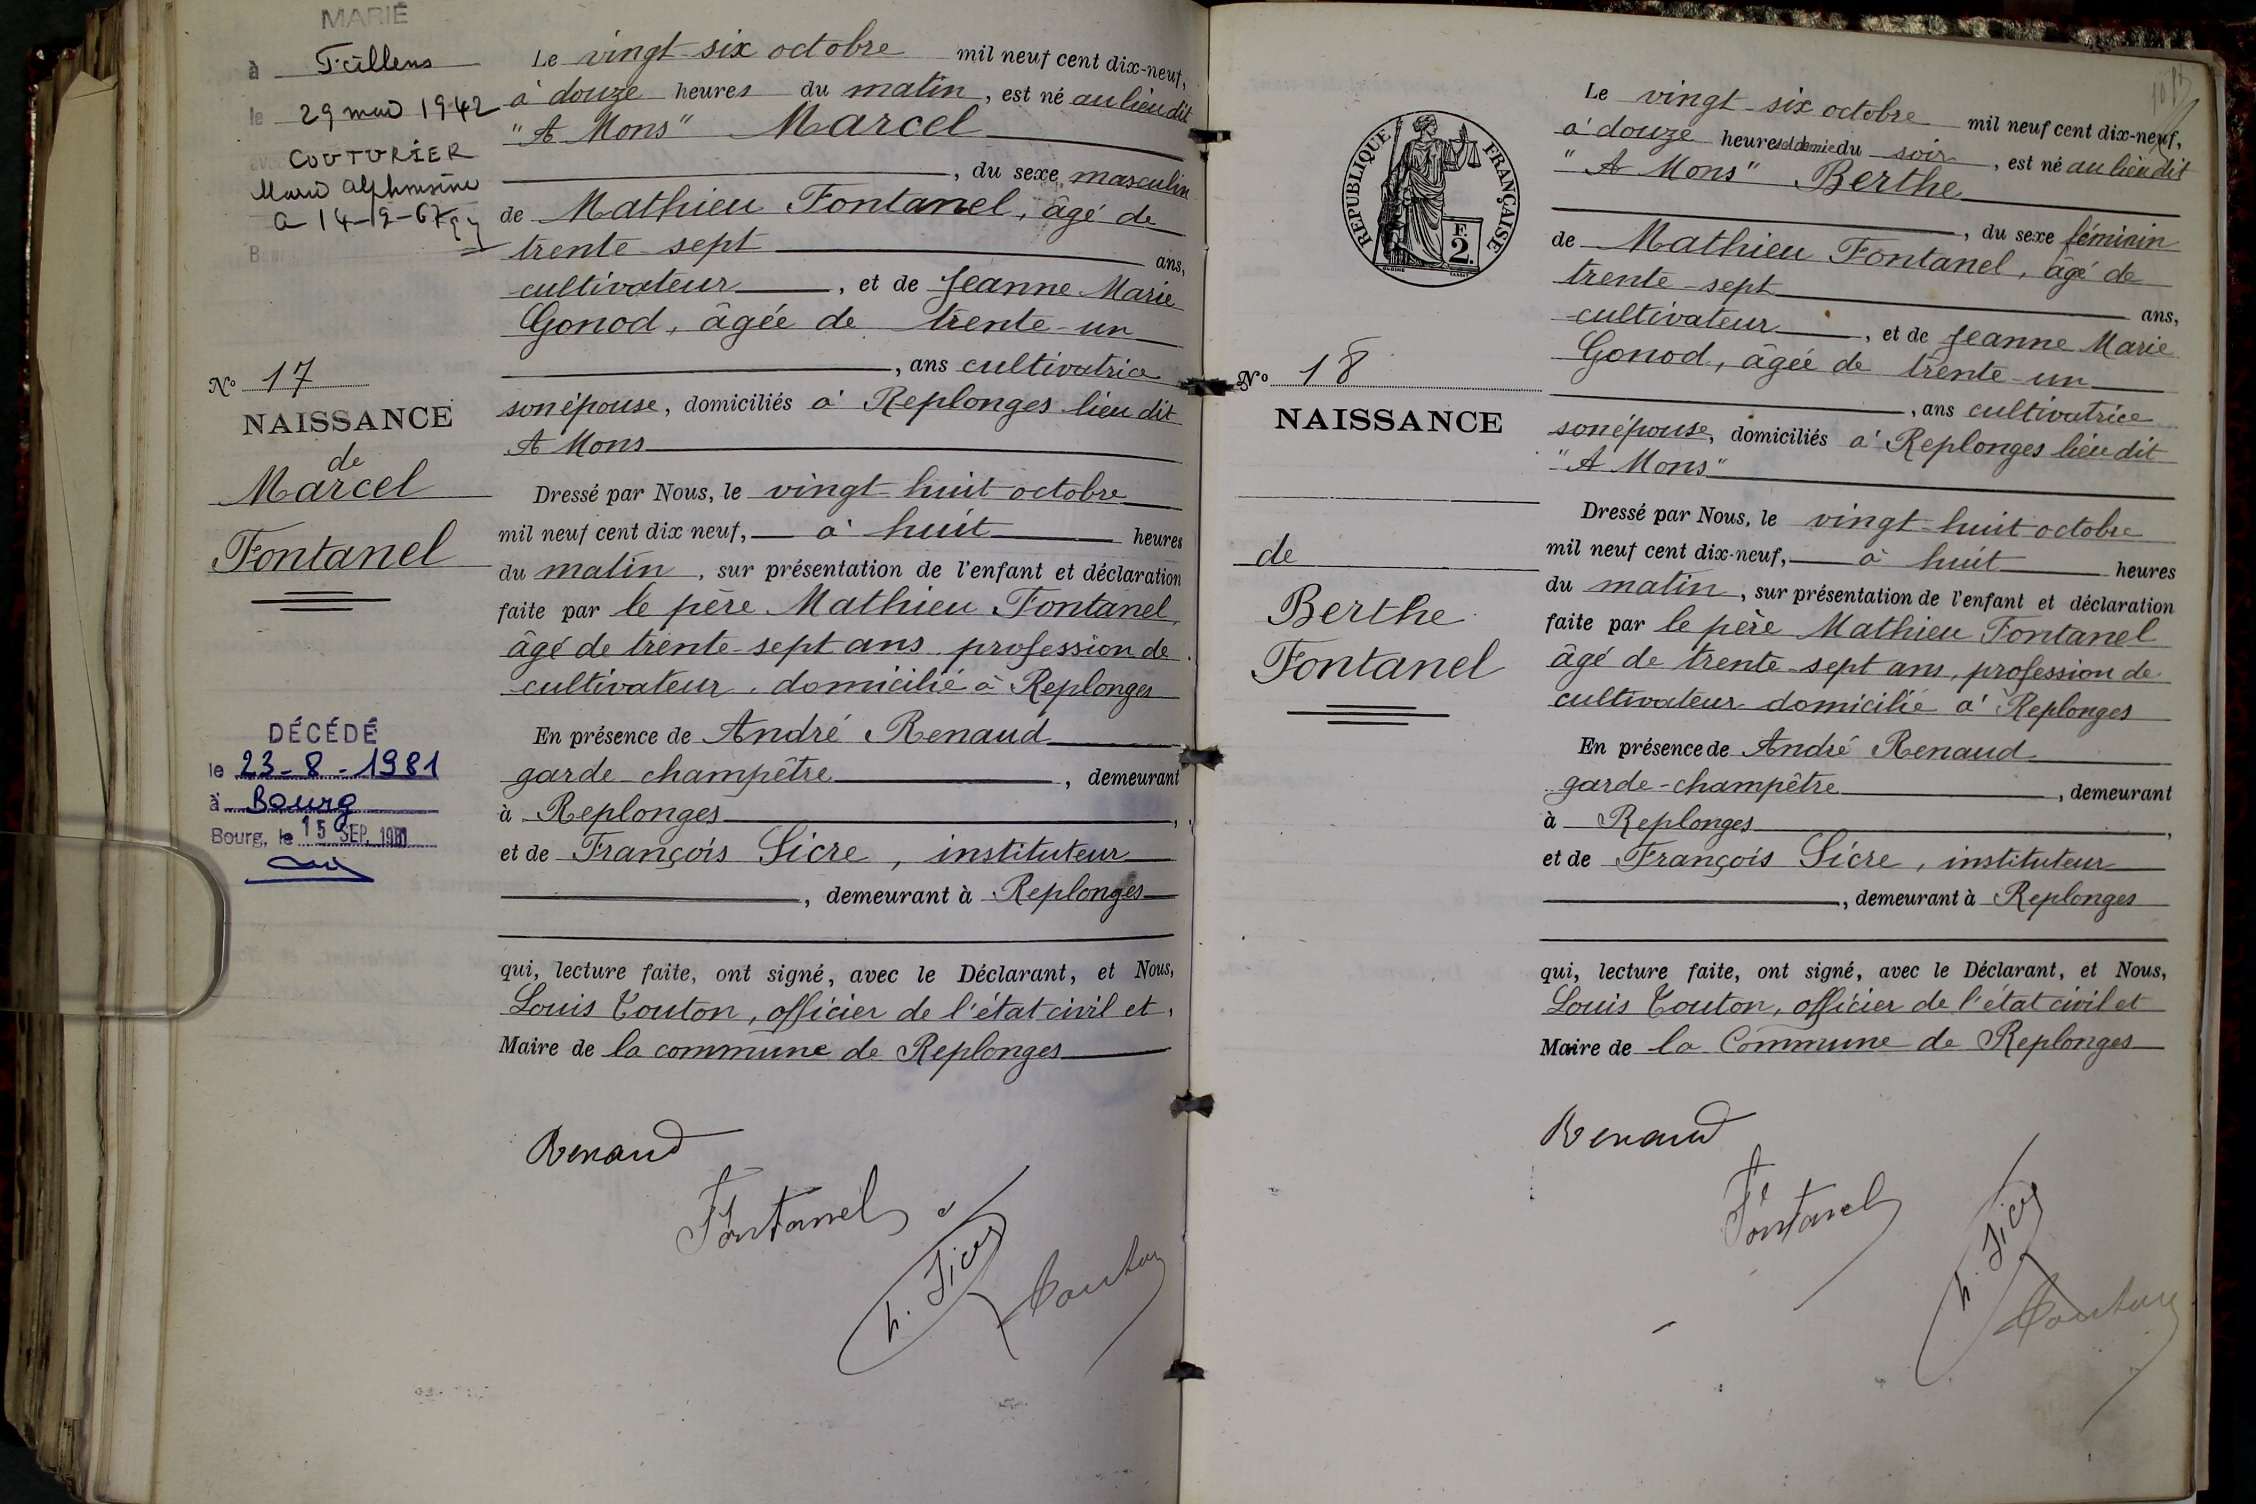 MARIÉ
à Feillens
le 29 mai 1942
COUTURIER
Marie Alphonsine
N° 17
NAISSANCE
de
Marcel
Fontanel
DÉCÉDÉ
le 23-8-1981
à Bourg
Bourg, le 15 SEP. 1981
Le vingt-six octobre mil neuf cent dix-neuf,
à douze heures du matin, est né au lieu dit
"A Mons" Marcel
, du sexe masculin
de Mathieu Fontanel, âgé de
trente-sept ans,
cultivateur, et de Jeanne Marie
Gonod, âgée de trente-un
, ans cultivatrice
son épouse, domiciliés à Replonges lieu dit
A Mons
Dressé par Nous, le vingt-huit octobre
mil neuf cent dix neuf, à huit heures
du matin, sur présentation de l'enfant et déclaration
faite par le père Mathieu Fontanel,
âgé de trente-sept ans profession de
cultivateur, domicilié à Replonges
En présence de André Renaud
garde-champêtre, demeurant
à Replonges,
et de François Sicre, instituteur
, demeurant à Replonges
qui, lecture faite, ont signé, avec le Déclarant, et Nous,
Louis Touton, officier de l'état civil et,
Maire de la commune de Replonges
Renaud
Fontanel
h. Sicre
Touton
REPUBLIQUE FRANÇAISE
F.
2.
N° 18
NAISSANCE
de
Berthe
Fontanel
Le vingt-six octobre mil neuf cent dix-neuf,
à douze heures et demie du soir, est né au lieu dit
"A Mons" Berthe
, du sexe féminin
de Mathieu Fontanel, âgé de
trente-sept ans,
cultivateur, et de Jeanne Marie
Gonod, âgée de trente-un
, ans cultivatrice
son épouse, domiciliés à Replonges lieu dit
"A Mons"
Dressé par Nous, le vingt-huit octobre
mil neuf cent dix-neuf, à huit heures
du matin, sur présentation de l'enfant et déclaration
faite par le père Mathieu Fontanel
âgé de trente-sept ans, profession de
cultivateur domicilié à Replonges
En présence de André Renaud
garde-champêtre, demeurant
à Replonges,
et de François Sicre, instituteur
, demeurant à Replonges
qui, lecture faite, ont signé, avec le Déclarant, et Nous,
Louis Touton, officier de l'état civil et
Maire de la Commune de Replonges
Renaud
Fontanel
h. Sicre
Touton